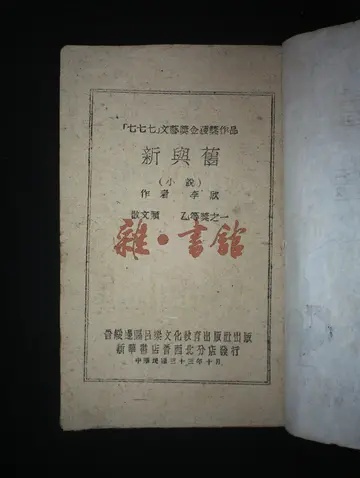 「七七七」文藝獎金獲獎作品
新與舊
（小說）
作者 李欣
散文類 乙等獎之一
雜·書館
晉綏邊區呂梁文化教育出版社出版
新華書店晉西北分店發行
中華民國三十三年十月